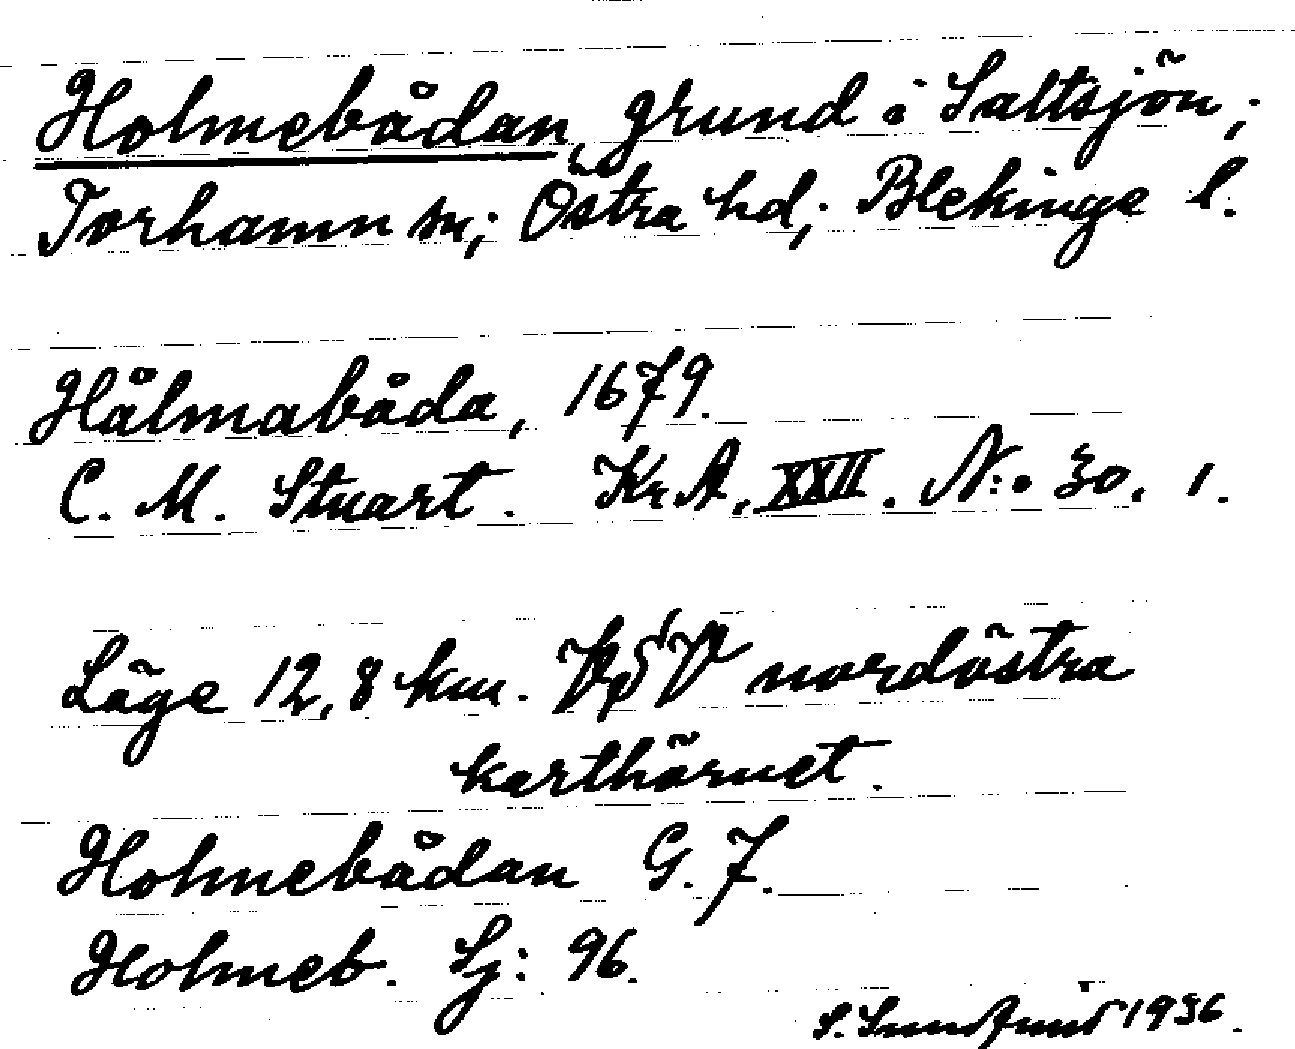 Holmebådan, grund i Saltsjön;
Torhamn sn; Östra hd; Blekinge l.
Hålmabåda, 1679.
C. M. Stuart. Kr. A, XXII. N:o 30. 1.
Läge 12,8 km. nordöstra
karthörnet.
Holmebådan G. 7.
Holmeb. Sj: 96.
S. 1936.